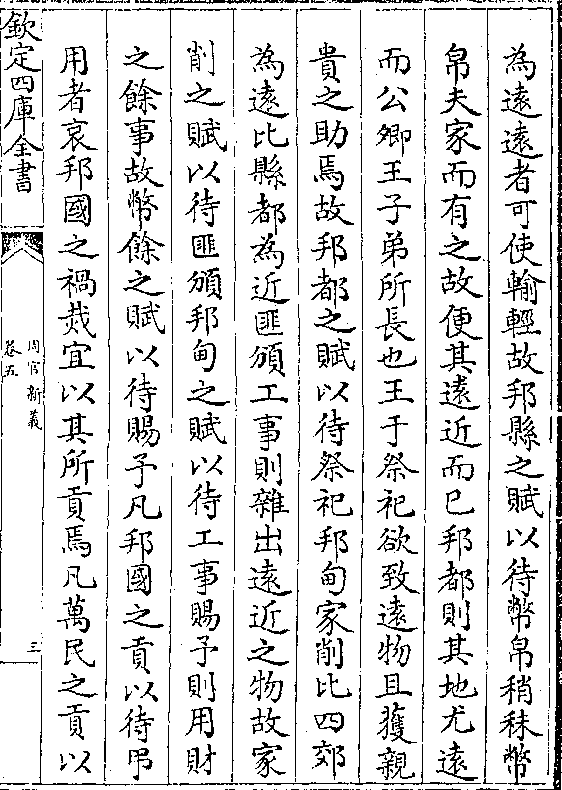 為逺逺者可使輸輕故邦縣之賦以待幣帛稍秣幣
帛夫家而有之故便其逺近而已邦都則其地尤逺
而公卿王子弟所長也王于祭祀欲致逺物且獲親
貴之助焉故邦都之賦以待祭祀邦甸家削比四郊
為逺比縣都為近匪頒工事則雜出逺近之物故家
削之賦以待匪頒邦甸之賦以待工事賜予則用財
之餘事故幣餘之賦以待賜予凡邦國之貢以待弔
用者哀邦國之禍烖宜以其所貢焉凡萬民之貢以
欽定四庫全書
周官新義
卷五
三